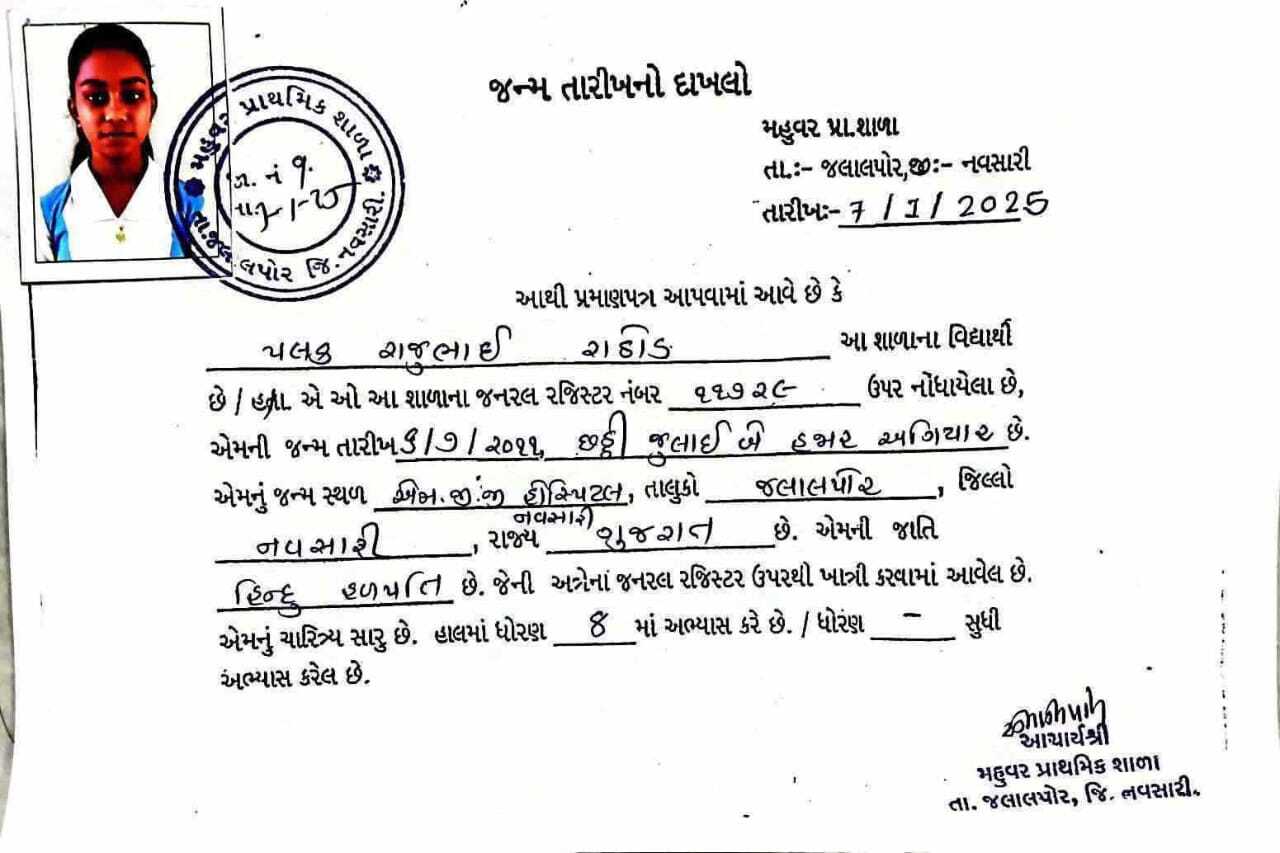 જન્મ તારીખનો દાખલો
મહુવર પ્રા.શાળા
તા.:- જલાલપોર,જી:- નવસારી
તારીખ:- 7/1/2025
મહુવર પ્રાથમિક શાળા
જા. નં ૧
તા.7-1-25
તા.જલાલપોર જિ.નવસારી.
આથી પ્રમાણપત્ર આપવામાં આવે છે કે
પલક રાજુભાઈ રાઠોડ આ શાળાના વિદ્યાર્થી
છે / હતા. એ ઓ આ શાળાના જનરલ રજિસ્ટર નંબર ૧૧૭૨૯ ઉપર નોંધાયેલા છે,
એમની જન્મ તારીખ ૬/૭/૨૦૧૧, છઠ્ઠી જુલાઈ બે હજાર અગિયાર છે.
એમનું જન્મ સ્થળ એમ.જી.જી હોસ્પિટલ, તાલુકો જલાલપોર, જિલ્લો
નવસારી
નવસારી, રાજ્ય ગુજરાત છે. એમની જાતિ
હિન્દુ હળપતિ છે. જેની અત્રેનાં જનરલ રજિસ્ટર ઉપરથી ખાત્રી કરવામાં આવેલ છે.
એમનું ચારિત્ર્ય સારુ છે. હાલમાં ધોરણ 8 માં અભ્યાસ કરે છે. / ધોરણ - સુધી
અભ્યાસ કરેલ છે.
આચાર્યશ્રી
મહુવર પ્રાથમિક શાળા
તા. જલાલપોર, જિ. નવસારી.